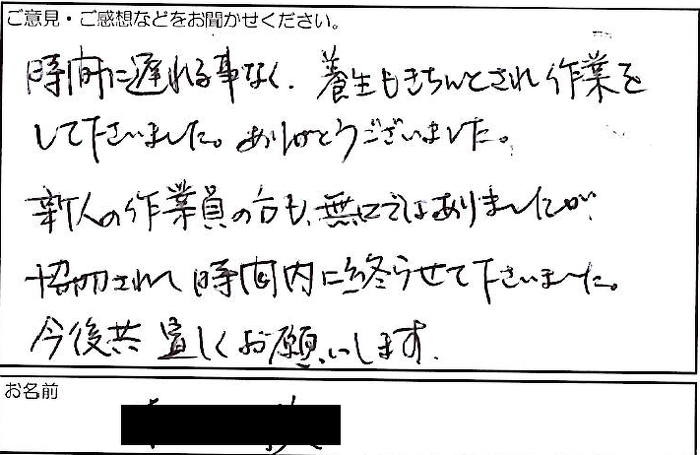 ご意見・ご感想などをお聞かせください。
時間に遅れる事なく、養生もきちんとされ作業を
して下さいました。ありがとうございました。
新人の作業員の方も、無口ではありましたが、
協力されて時間内に終らせて下さいました。
今後共宜しくお願いします。
お名前